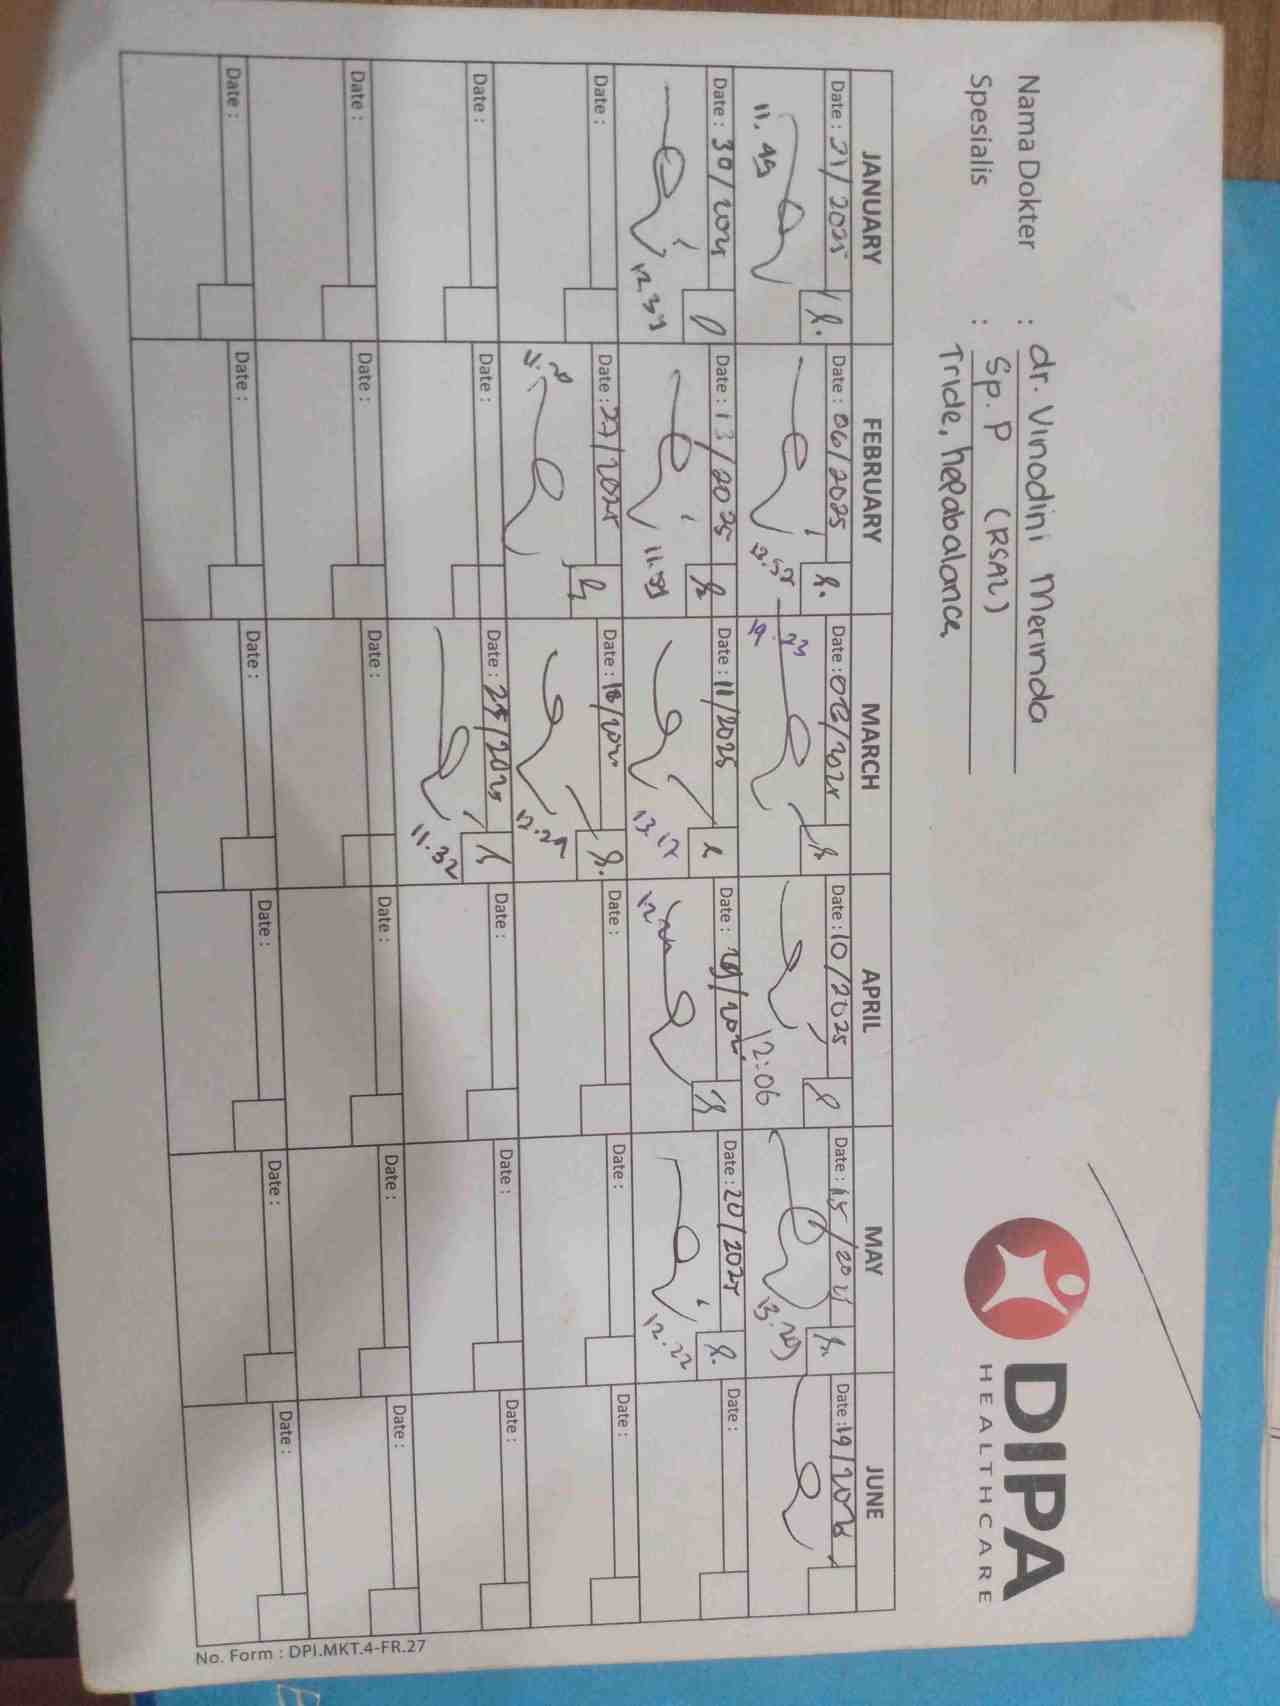 Nama Dokter : dr. Vinodini Merinda
Spesialis : Sp. P (RSAL)
Tride, hepabalance
DIPA
HEALTHCARE
JANUARY FEBRUARY MARCH APRIL MAY JUNE
Date : 21/2025 Date : 06/2025 Date : 06/2025 Date : 10/2025 Date : 15/2025 Date : 19/2025
11.49 12.58 19.23 12:06 13.29
Date : 30/2025 Date : 13/2025 Date : 11/2025 Date : Date : 20/2025 Date :
12.39 11.59 13.17 12.22
Date : Date : 27/2025 Date : 18/2025 Date : Date : Date :
11.20 12.29
Date : Date : Date : 25/2025 Date : Date : Date :
11.32
Date : Date : Date : Date : Date : Date :
Date : Date : Date : Date : Date : Date :
No. Form : DPI.MKT.4-FR.27